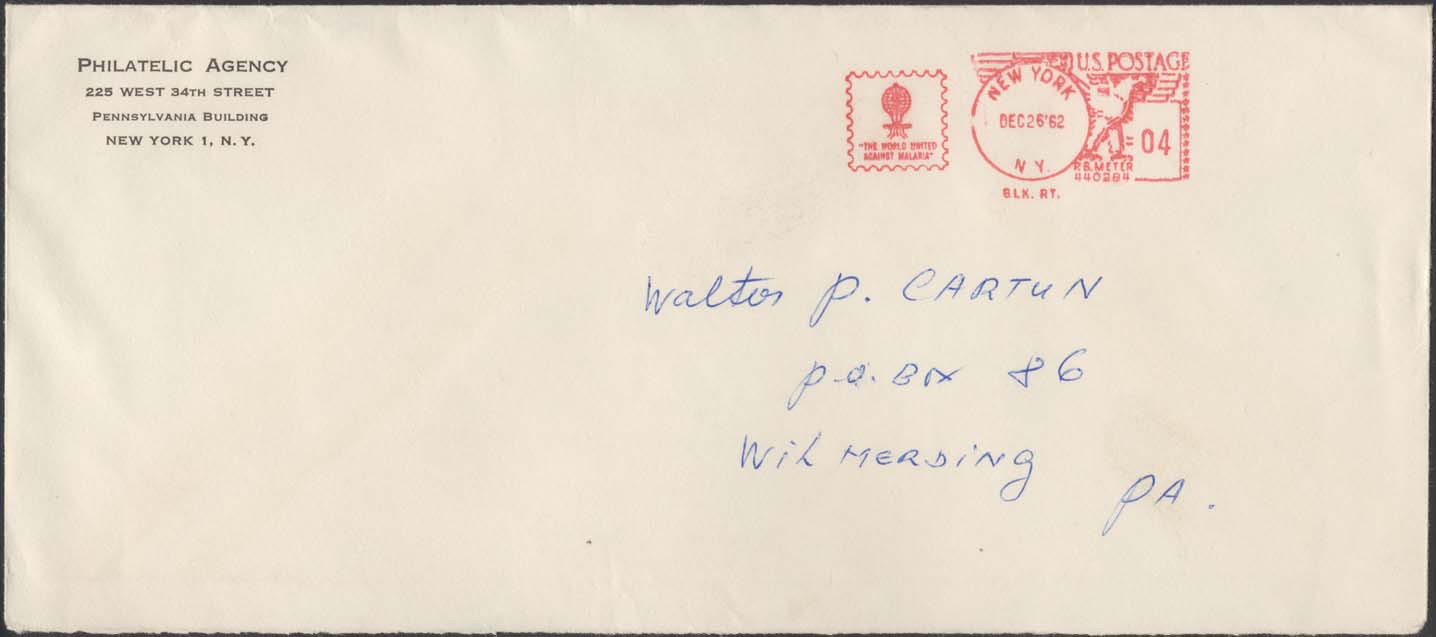 PHILATELIC AGENCY
225 WEST 34TH STREET
PENNSYLVANIA BUILDING
NEW YORK 1, N. Y.
"THE WORLD UNITED
AGAINST MALARIA"
NEW YORK
DEC 26 '62
N Y.
BLK. RT.
U.S. POSTAGE
04
P.B. METER
440284
Walter P. CARTUN
P.O. BOX 86
WILMERDING
PA.